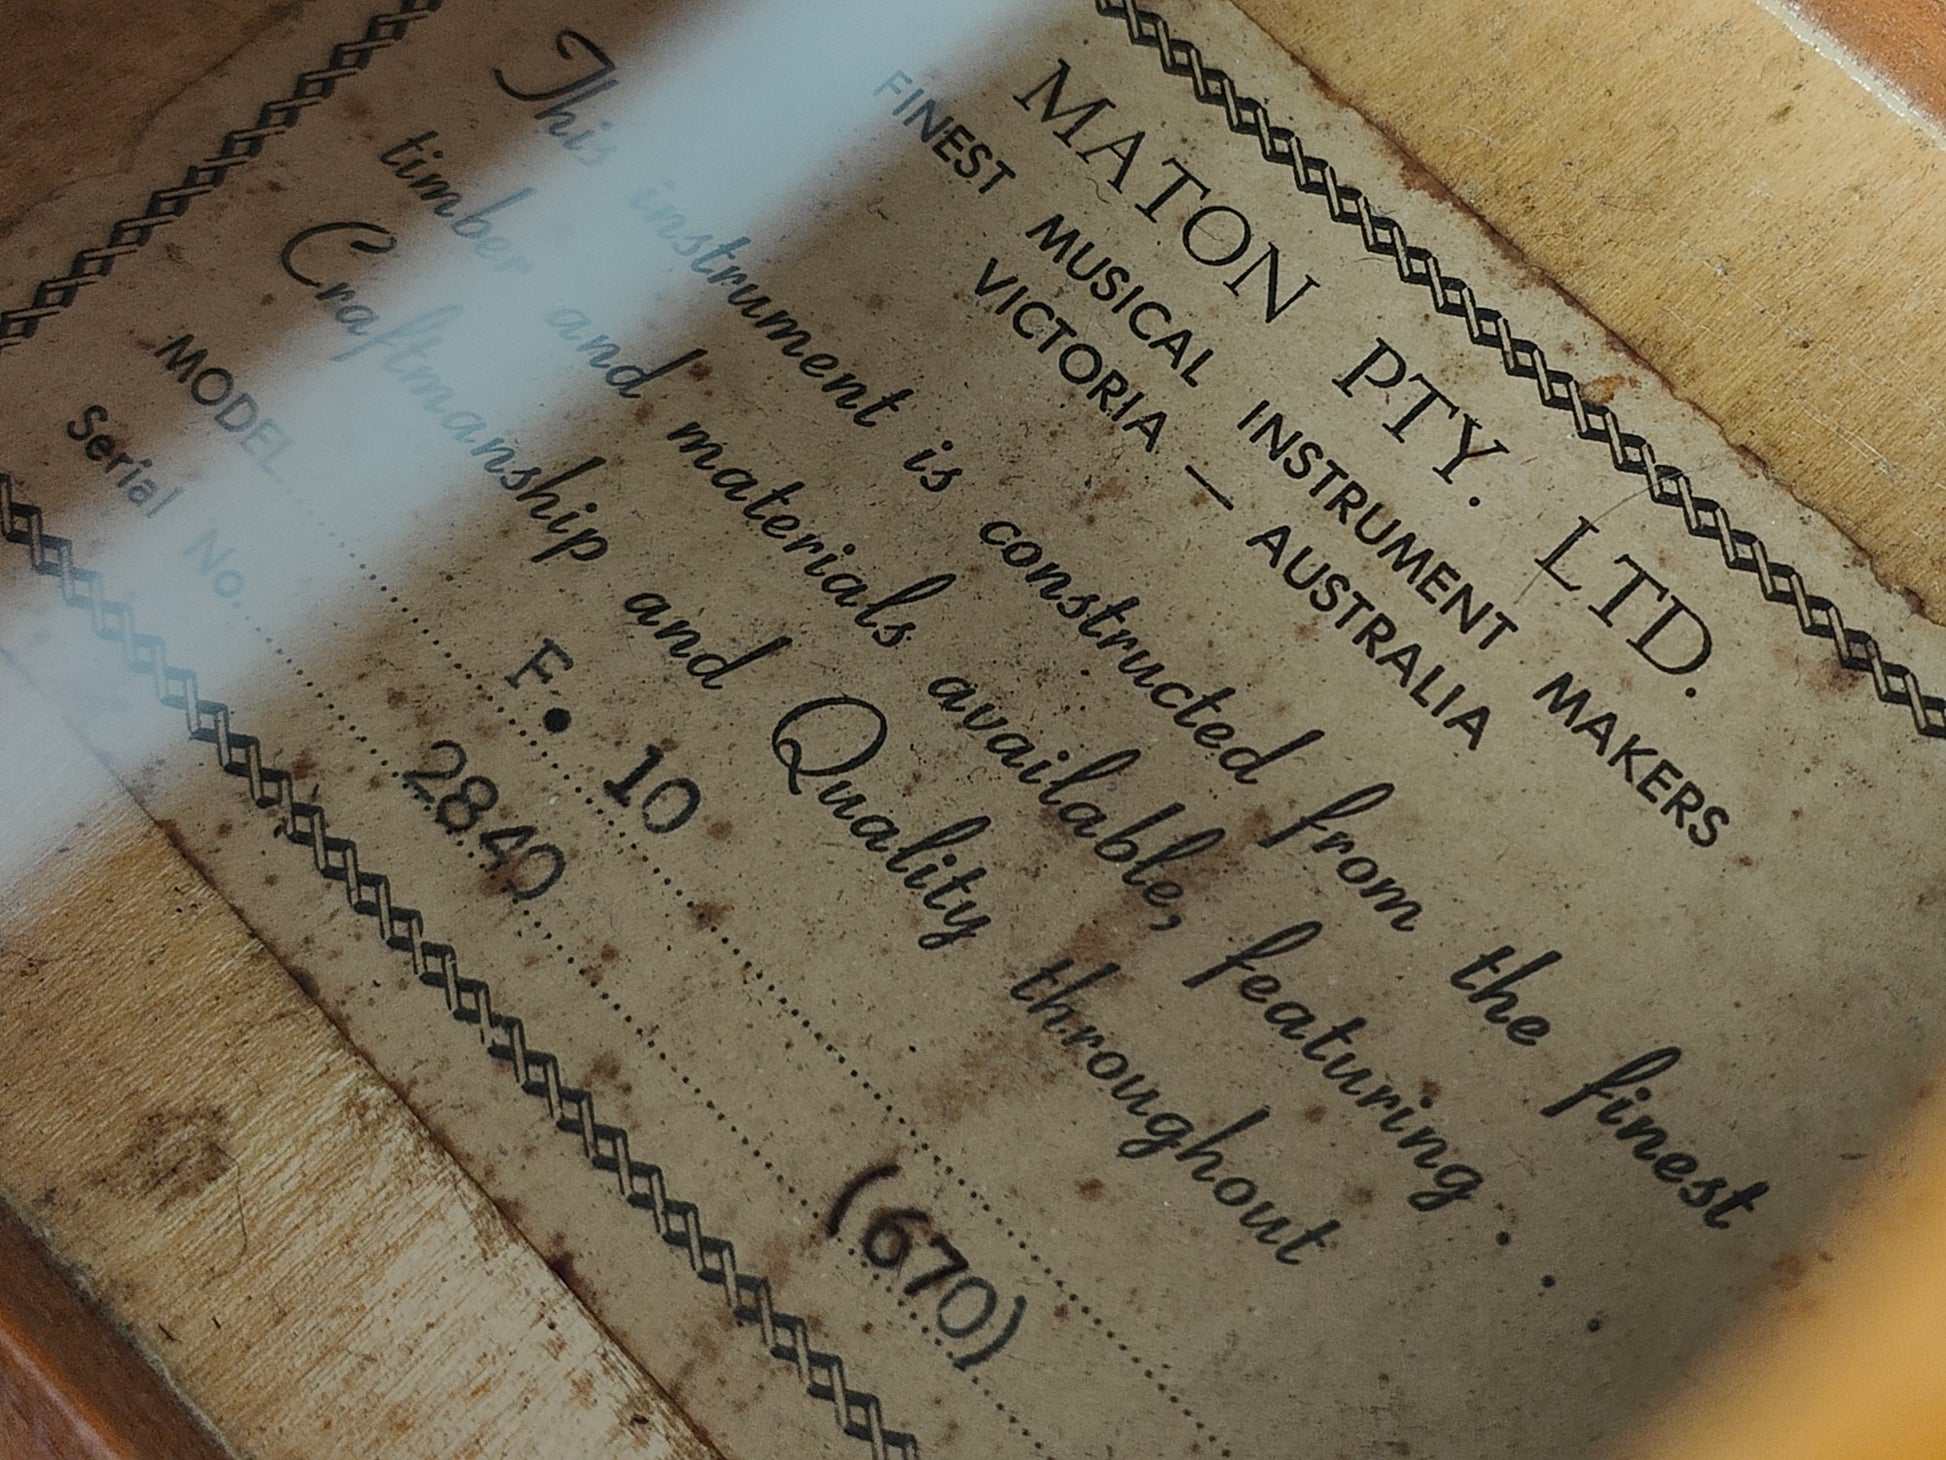 MATON PTY. LTD.
FINEST MUSICAL INSTRUMENT MAKERS
VICTORIA — AUSTRALIA
This instrument is constructed from the finest
timber and materials available, featuring . . .
Craftmanship and Quality throughout
MODEL F. 10
Serial No. 2840 (670)